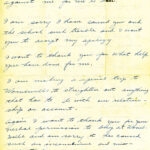 against me for is
I am sorry I have caused you and
the school such trouble and I want
you to accept my apology
I want to thank you for what help
you have done for me.
I am making a special trip to
to straighten out anything
that has to do with our relation-
ship or account.
Again I want to thank you for your
verbal permission to stay at
and am sorry to
such an inconvenience and